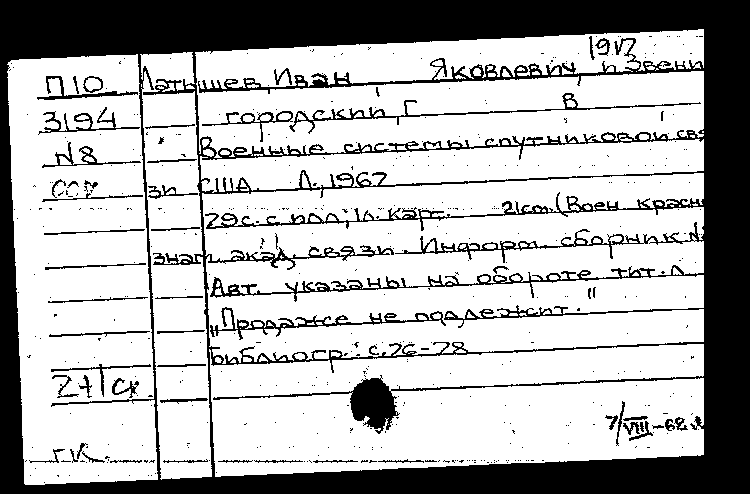 1912
П10 Латышев, Иван Яковлевич, и Звени
3194 городский, Г В
№8 Военные системы спутниковой свя
зи США. Л., 1967
29с. с илл; 1л. карт. 21cm. (Воен красно
знам акад. связи. Информ. сборник №
Авт. указаны на обороте тит. л
„Продаже не подлежит."
Библиогр.: с. 26-28
2+1ск
7/VIII-68
гк.